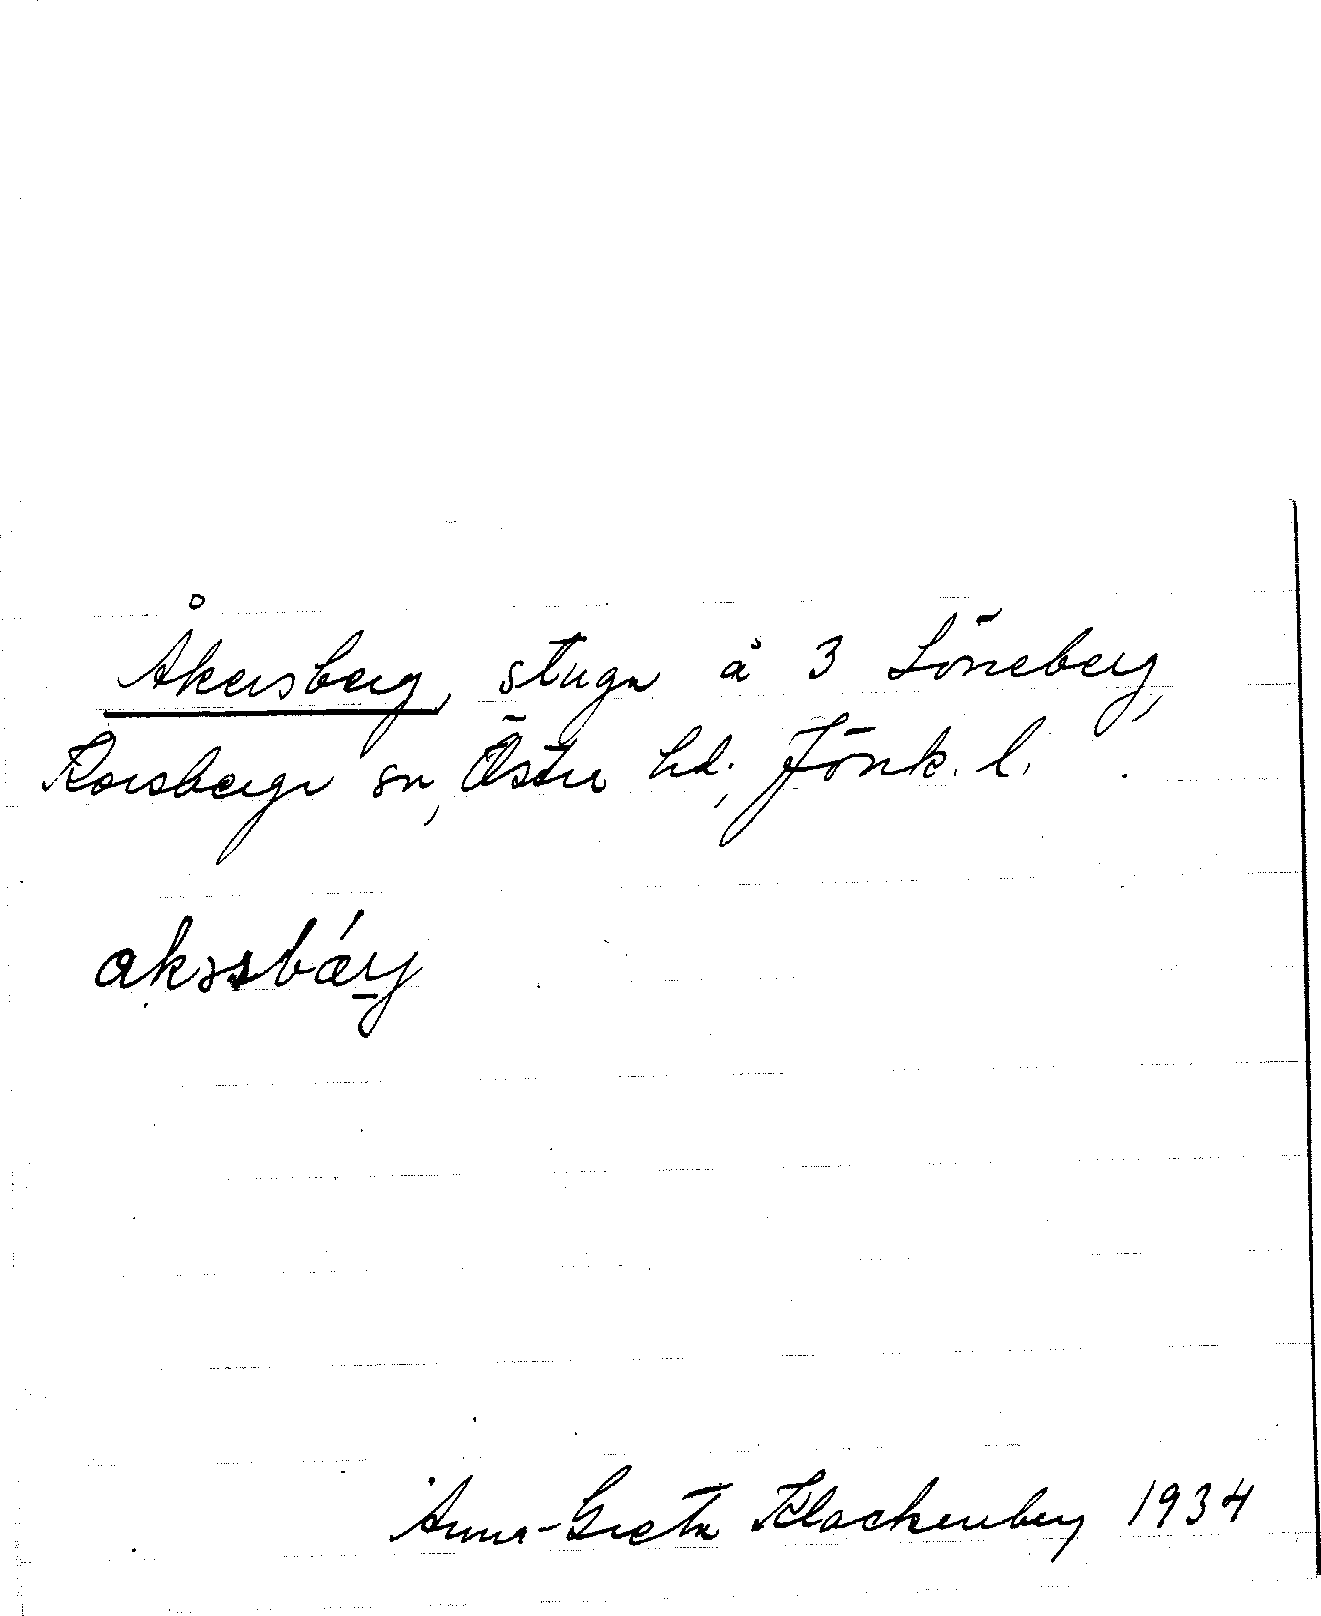 Åkersberg, stuga å 3 Löneberg,
Korsberga sn, Östra hd., Jönk. l.
akəsbǽry
Anna-Greta Klackenberg 1934